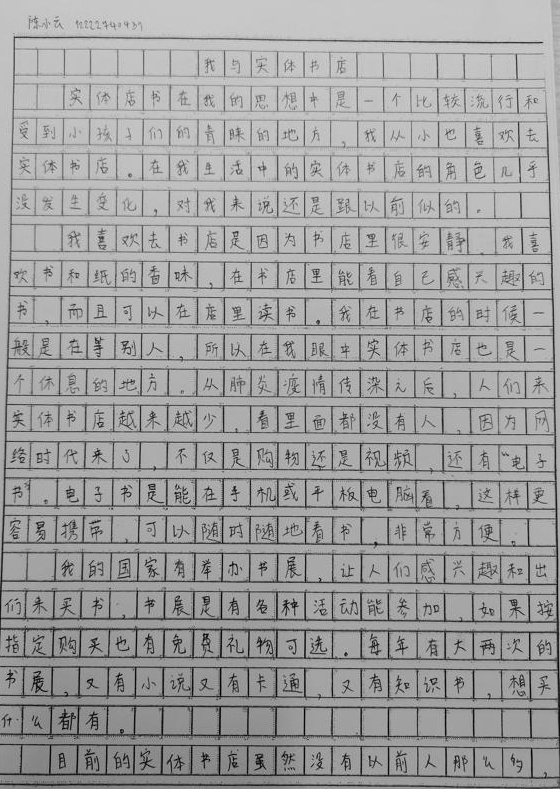 陈小云 12222740939
我与实体书店
实体店书在我的思想中是一个比较流行和
受到小孩子们的青睐的地方，我从小也喜欢去
实体书店。在我生活中的实体书店的角色几乎
没发生变化，对我来说还是跟以前似的。
我喜欢去书店是因为书店里很安静，我喜
欢书和纸的香味，在书店里能看自己感兴趣的
书，而且可以在店里读书。我在书店的时候一
般是在等别人，所以在我眼中实体书店也是一
个休息的地方。从肺炎疫情传染元后，人们来
实体书店越来越少，看里面都没有人，因为网
络时代来了，不仅是购物还是视频，还有“电子
书”。电子书是能在手机或平板电脑看，这样更
容易携带，可以随时随地看书，非常方便。
我的国家有举办书展，让人们感兴趣和出
们来买书，书展是有各种活动能参加，如果按
指定购买也有免费礼物可选。每年有大两次的
书展，又有小说又有卡通，又有知识书，想买
什么都有。
目前的实体书店虽然没有以前人那么多，